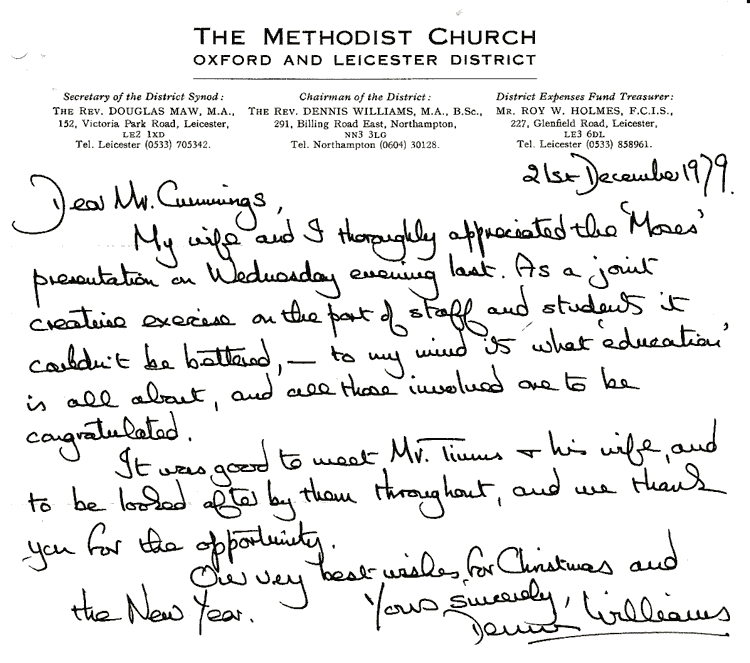 THE METHODIST CHURCH
OXFORD AND LEICESTER DISTRICT
Secretary of the District Synod:
THE REV. DOUGLAS MAW, M.A.,
152, Victoria Park Road, Leicester,
LE2 1XD
Tel. Leicester (0533) 705342.
Chairman of the District:
THE REV. DENNIS WILLIAMS, M.A., B.Sc.,
291, Billing Road East, Northampton,
NN3 3LG
Tel. Northampton (0604) 30128.
District Expenses Fund Treasurer:
MR. ROY W. HOLMES, F.C.I.S.,
227, Glenfield Road, Leicester,
LE3 6DL
Tel. Leicester (0533) 858961.
21st December 1979.
Dear Mr. Cummings,
My wife and I thoroughly appreciated the 'Moses'
presentation on Wednesday evening last. As a joint
creative exercise on the part of staff and students it
couldn't be bettered, — to my mind it's what 'education'
is all about, and all those involved are to be
congratulated.
It was good to meet Mr. Timms + his wife, and
to be looked after by them throughout, and we thank
you for the opportunity.
Our very best wishes for Christmas and
the New Year. Yours sincerely,
Dennis Williams